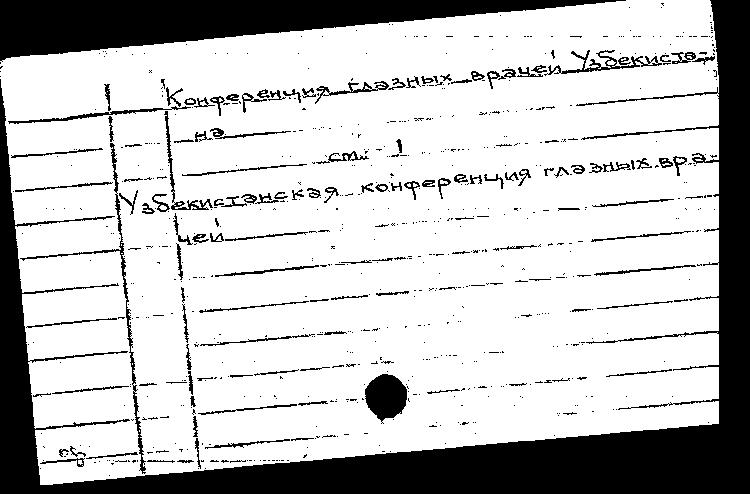 Конференция глазных врачей Узбекиста-
на
см. 1
Узбекистанская конференция глазных вра-
чей